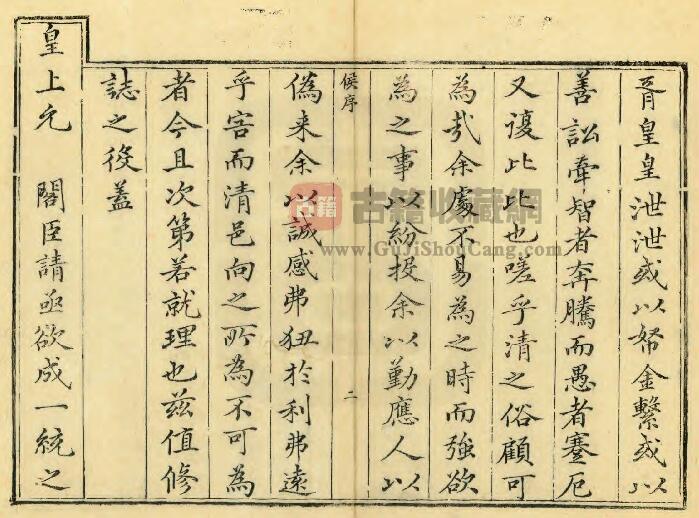 胥皇皇泄泄或以帑金繫或以
善訟牽智者奔騰而愚者蹇厄
又復比比也嗟乎清之俗顧可
為哉余處不易為之時而強欲
為之事以紛投余以勤應人以
候序
二
偽來余以誠感弗狃於利弗遠
乎害而清邑向之所為不可為
者今且次第若就理也茲值修
誌之役蓋
皇上允 閣臣請亟欲成一統之
古籍
古籍收藏網
www.GuJiShouCang.com